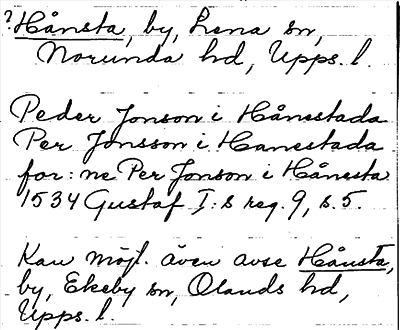 ? Hånsta, by, Lena sn,
Norunda hd, Upps. l.
Peder Jonson i Hånestada
Per Jonsson i Hanestada
for: ne Per Jonson i Hånesta
1534 Gustaf I:s reg. 9, s. 5.
Kan möjl. även avse Hånsta,
by, Ekeby sn, Olands hd,
Upps. l.